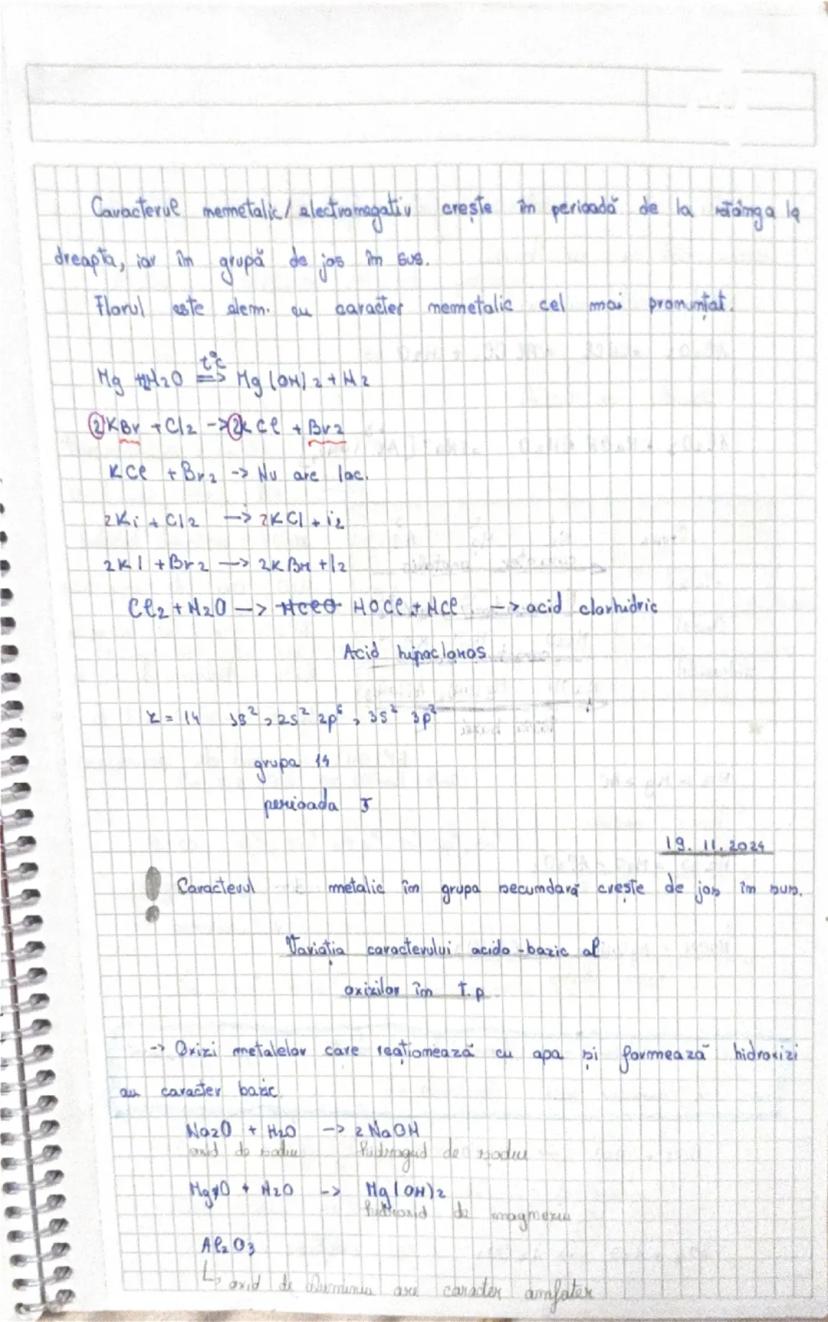 Caracterul nemetalic/electronegativ crește în perioadă de la stânga la
dreapta, iar în grupă de jos în sus.
Florul este elem. cu caracter nemetalic cel mai pronunțat.
Mg + H2O =t°C=> Mg(OH)2 + H2
2KBr + Cl2 -> 2KCl + Br2
KCl + Br2 -> Nu are loc.
2Ki + Cl2 -> 2KCl + i2
2KI + Br2 -> 2KBr + I2
Cl2 + H2O -> HOCl + HCl -> acid clorhidric
Acid hipocloros
z = 14 1s², 2s² 2p⁶, 3s² 3p²
grupa 14
perioada
19.11.2024
! Caracterul metalic în grupa secundară crește de jos în sus.
Variația caracterului acido-bazic al
oxizilor în T.p
-> Oxizi metalelor care reaționează cu apa și formează hidroxizi
au caracter bazic
Na2O + H2O -> 2NaOH
oxid de sodiu de sodiu
MgO + H2O -> Mg(OH)2
hidroxid de magneziu
Al2O3
↳ oxid de aluminiu are caracter amfoter